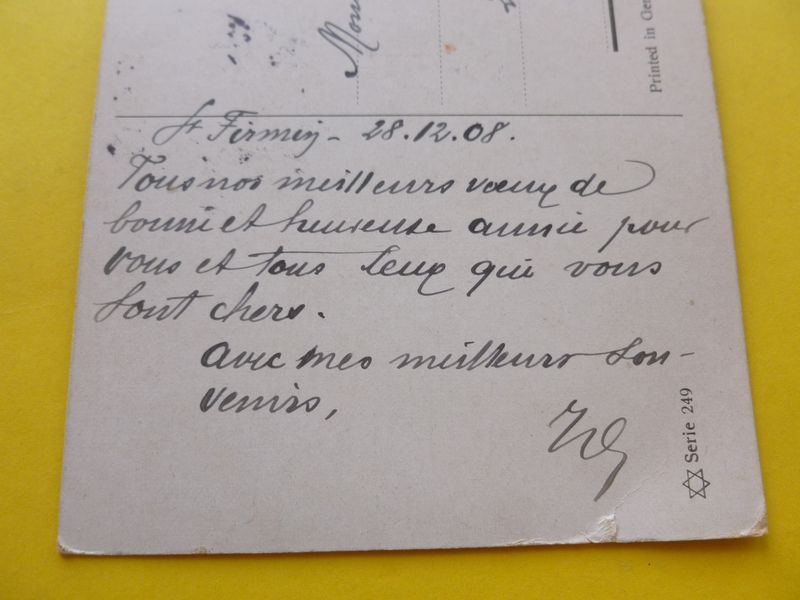 Mon
Printed in Ger
St Firmin - 28.12.08.
Tous nos meilleurs vœux de
bonne et heureuse année pour
vous et tous ceux qui vous
sont chers.
Avec mes meilleurs sou-
venirs,
Serie 249